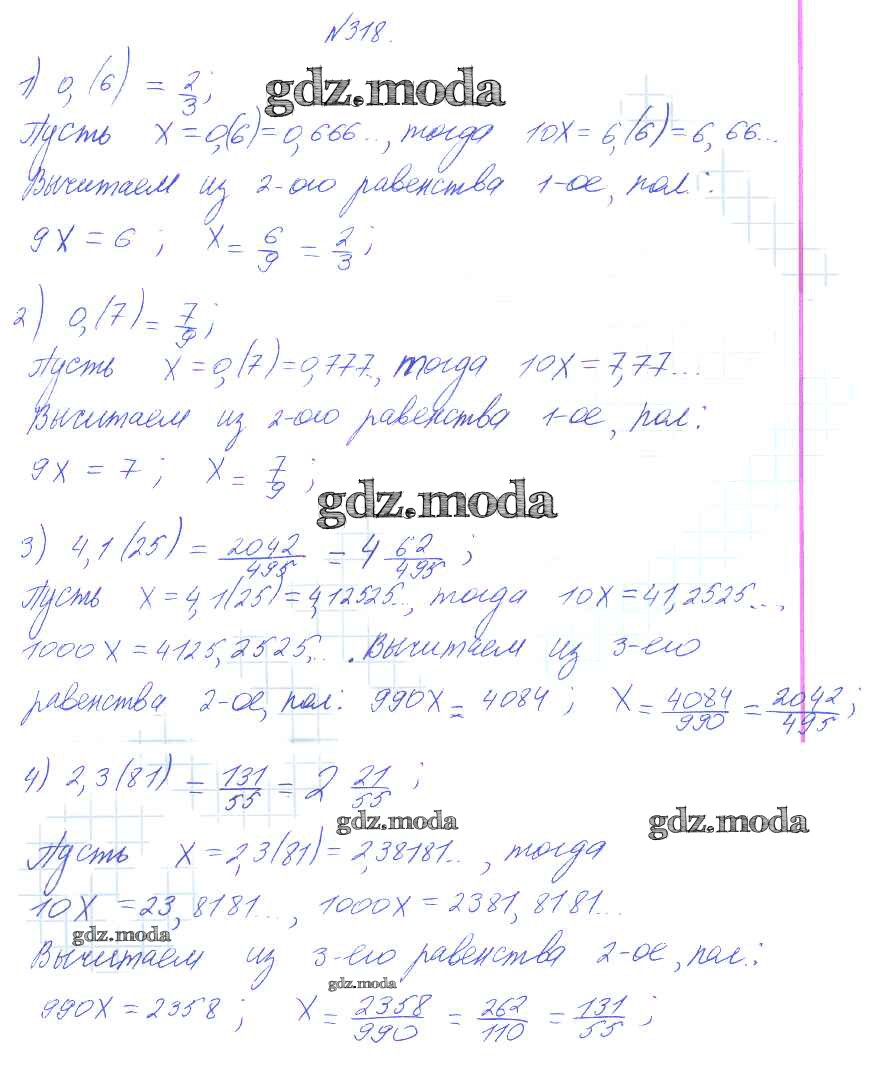 №318.
1) 0,(6) = 2/3;
gdz.moda
Пусть x = 0,(6) = 0,666.., тогда 10x = 6,(6) = 6,66...
Вычитаем из 2-ого равенства 1-ое, пол.:
9x = 6 ; x = 6/9 = 2/3 ;
2) 0,(7) = 7/9;
Пусть x = 0,(7) = 0,777.., тогда 10x = 7,77...
Вычитаем из 2-ого равенства 1-ое, пол:
9x = 7 ; x = 7/9 ;
gdz.moda
3) 4,1(25) = 2042/495 = 4 62/495 ;
Пусть x = 4,1(25) = 4,12525.., тогда 10x = 41,2525...,
1000x = 4125,2525... . Вычитаем из 3-его
равенства 2-ое, пол: 990x = 4084 ; x = 4084/990 = 2042/495 ;
4) 2,3(81) = 131/55 = 2 21/55 ;
gdz.moda
gdz.moda
Пусть x = 2,3(81) = 2,38181.. , тогда
10x = 23,8181... , 1000x = 2381,8181...
gdz.moda
Вычитаем из 3-его равенства 2-ое, пол.:
gdz.moda
990x = 2358 ; x = 2358/990 = 262/110 = 131/55 ;